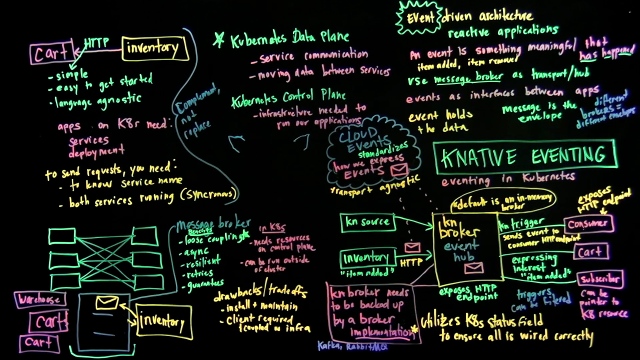 cart
HTTP
inventory
- simple
- easy to get started
- language agnostic
apps on K8s need:
services
deployment
to send requests, you need:
- to know service name
- both services running (syncronous)
Complement,
not
replace
Kubernetes Data Plane
- service communication
- moving data between services
Kubernetes Control Plane
- infrastructure needed to
run our applications
Event driven architecture
reactive applications
An event is something meaningful that
has happened
item added, item removed
use message broker as transport/hub
events as interfaces between apps
event holds
the data
message is the
envelope
different
brokers =
different envelopes
CLOUD
EVENTS
standardizes
how we express
EVENTS
transport agnostic
KNATIVE EVENTING
eventing in Kubernetes
*default is an in-memory
broker
kn source
inventory
"item added"
HTTP
kn
broker
event
hub
exposes HTTP
endpoint
kn trigger
sends event to
consumer HTTP endpoint
expressing
interest
"item added"
triggers
can be filtered
exposes
HTTP endpoint
consumer
cart
subscriber
can be
pointer to
K8 resource
kn broker needs
to be backed up
by a broker
implementation
Kafka, RabbitMQ
*utilizes K8s status field
to ensure all is wired correctly
Message broker
benefits
- loose coupling
- async
- resilient
- retries
- guarantees
in K8s
- needs resources
on control plane
- can be run outside
of cluster
drawbacks/tradeoffs
- install + maintain
- client required
(coupled w infra)
warehouse
cart
cart
inventory